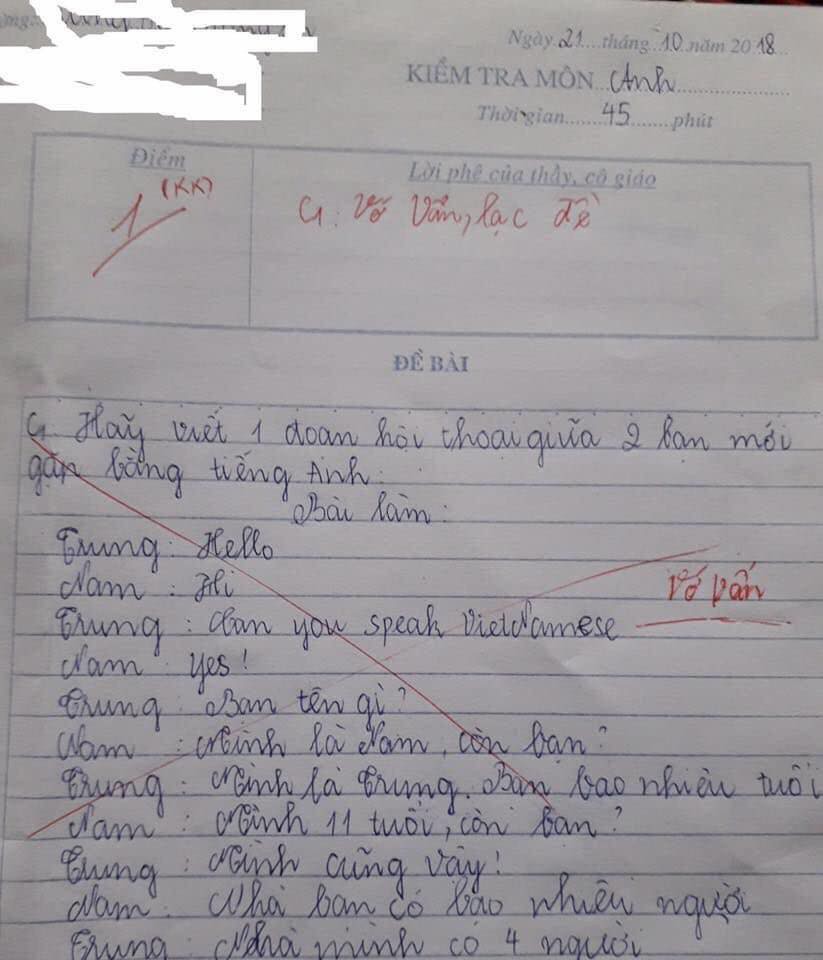 Ngày 21 tháng 10 năm 2018
KIỂM TRA MÔN Anh
Thời gian 45 phút
Điểm
Lời phê của thầy, cô giáo
1 (KK)
G: Vớ Vẩn, lạc đề
ĐỀ BÀI
G. Hãy viết 1 đoan hội thoại giữa 2 bạn mới
gặp bằng tiếng Anh.
Bài làm:
Trung: Hello
Nam: Hi
Trung: Can you speak VietNamese
Vớ vẩn
Nam: yes!
Trung: Bạn tên gì?
Nam: Mình là Nam, còn bạn?
Trung: Mình là Trung. Bạn bao nhiêu tuổi
Nam: Mình 11 tuổi, còn bạn?
Trung: Mình cũng vậy!
Nam: Nhà bạn có bao nhiêu người
Trung: Nhà mình có 4 người